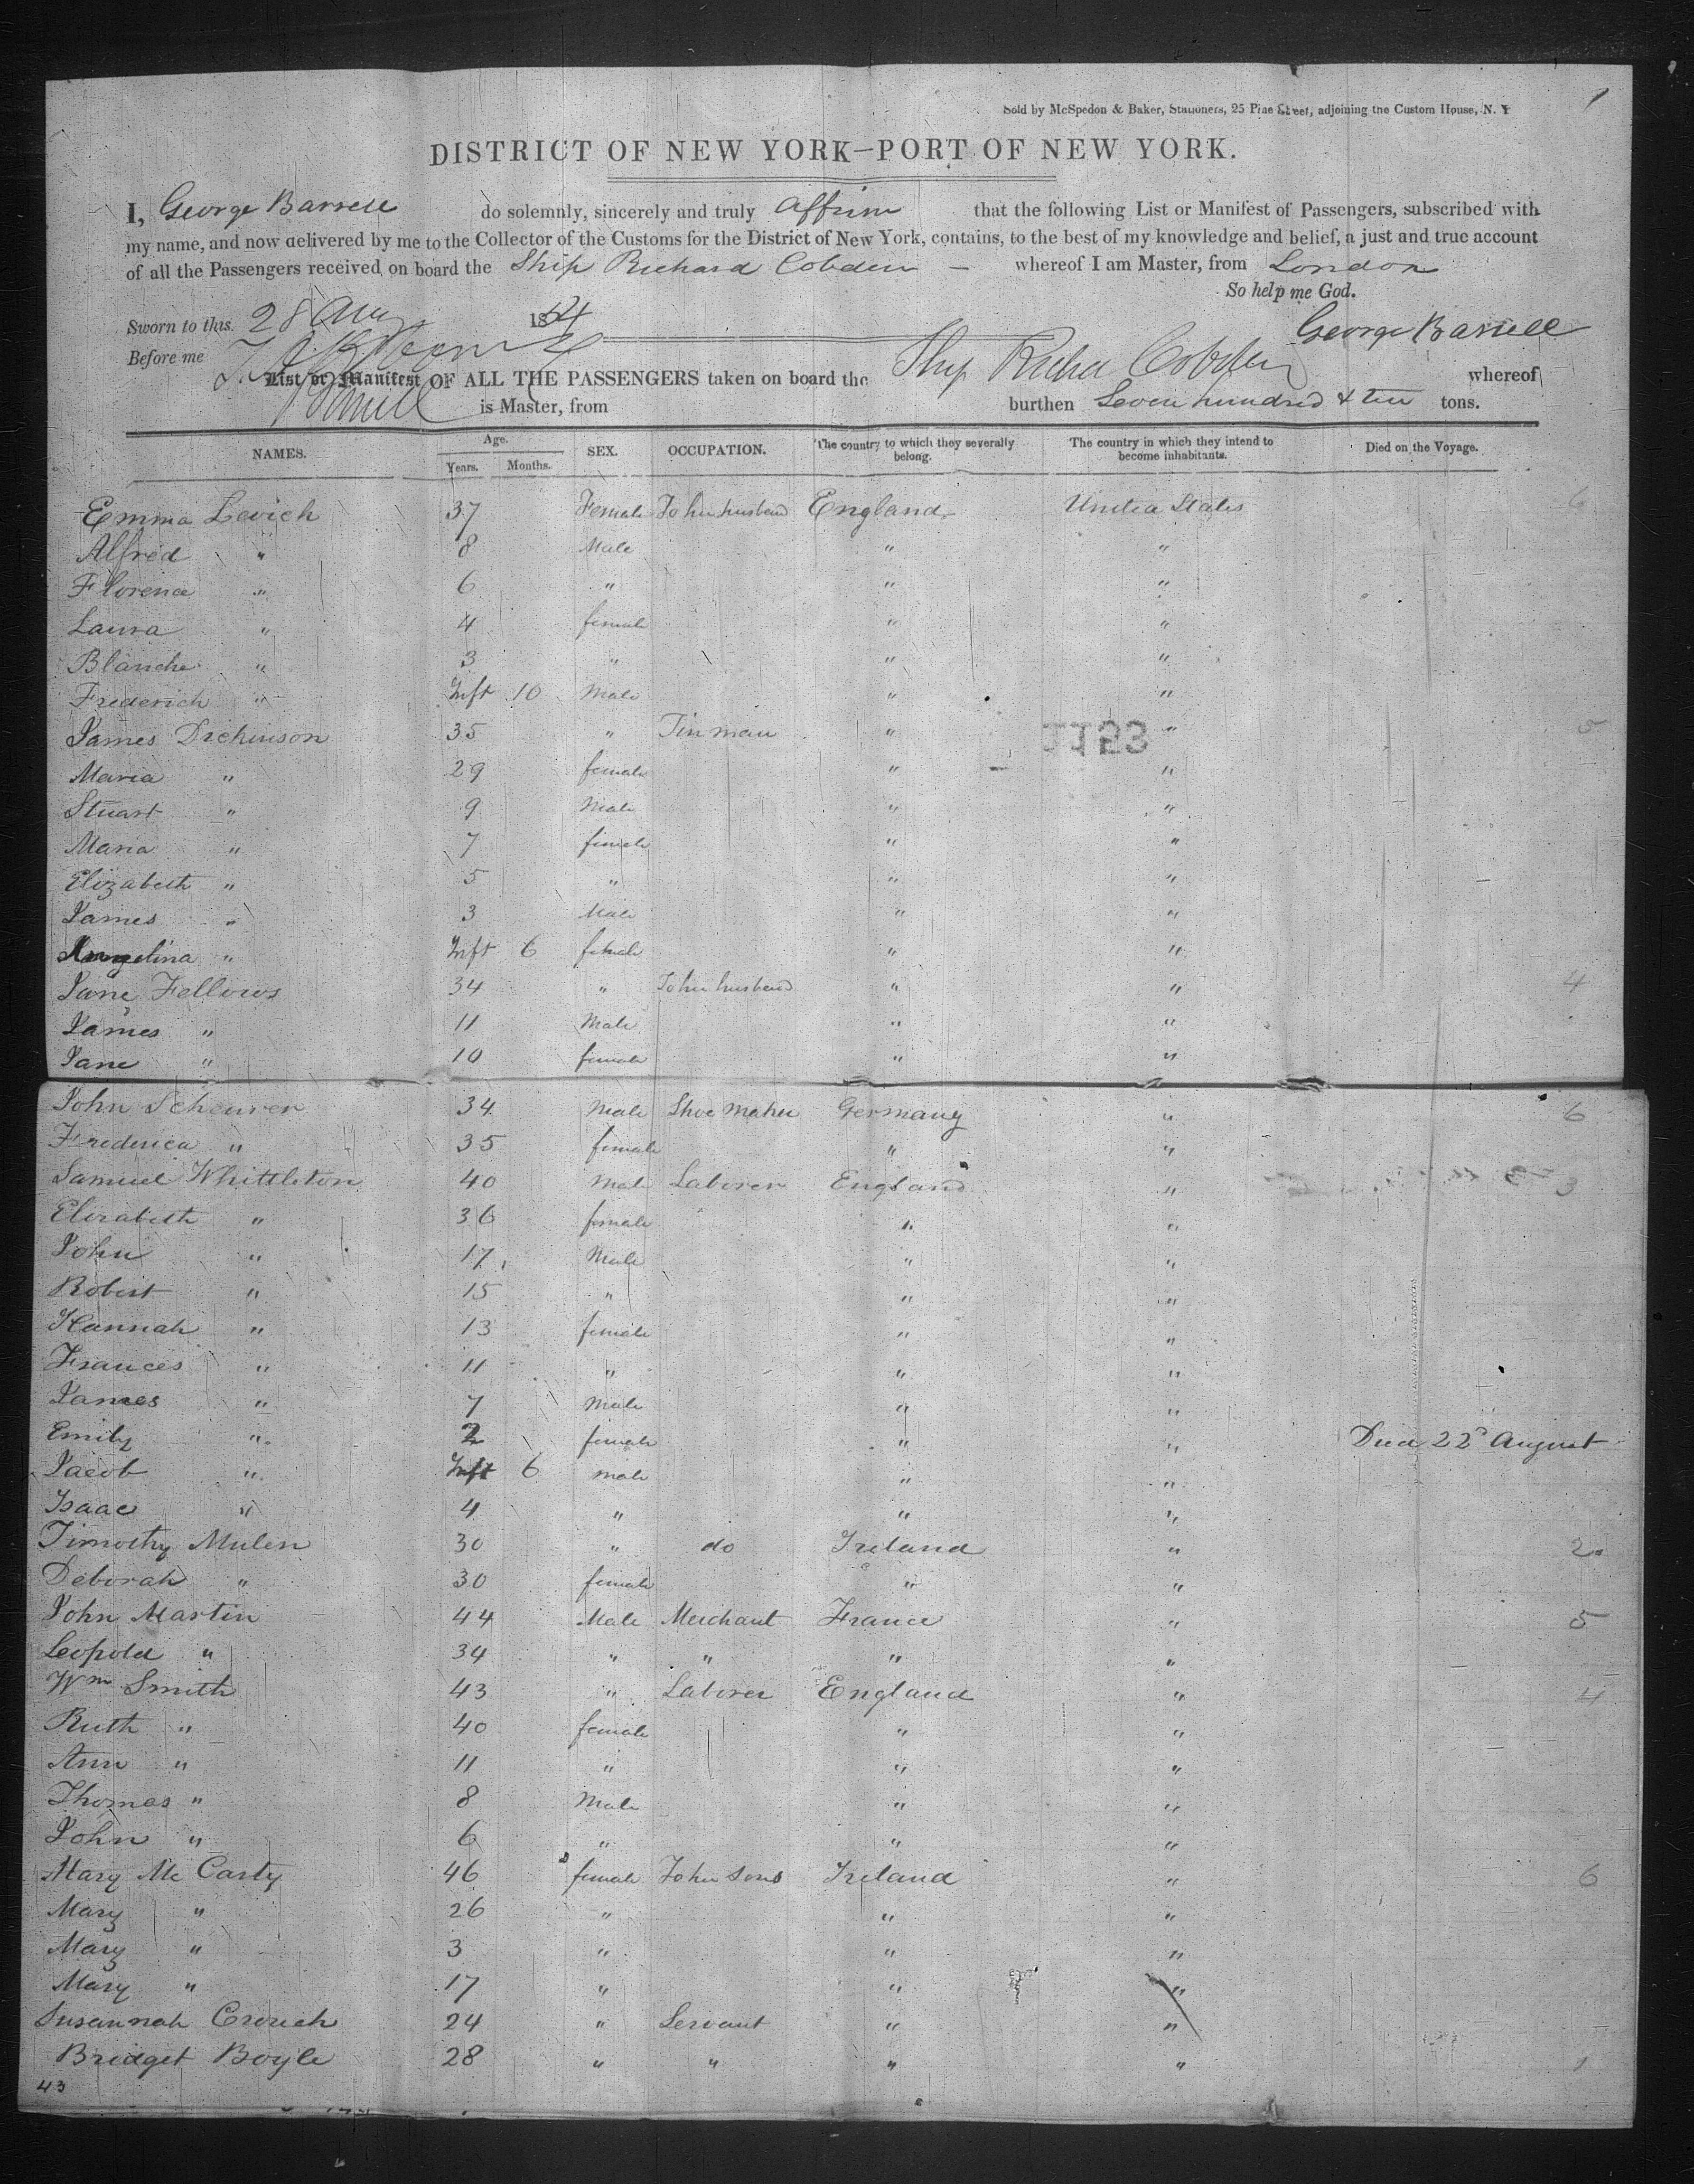 Sold by McSpedon & Baker, Stationers, 25 Pine Street, adjoining the Custom House, N. Y
DISTRICT OF NEW YORK—PORT OF NEW YORK.
I, George Barrell do solemnly, sincerely and truly Affirm that the following List or Manifest of Passengers, subscribed with
my name, and now delivered by me to the Collector of the Customs for the District of New York, contains, to the best of my knowledge and belief, a just and true account
of all the Passengers received on board the Ship Richard Cobden — whereof I am Master, from London
So help me God.
Sworn to this 28 Aug 1854
George Barrell
Before me
List or Manifest OF ALL THE PASSENGERS taken on board the Ship Richd Cobden whereof
Barrell is Master, from burthen Seven hundred & ten tons.
NAMES. Age. Years. Months. SEX. OCCUPATION. The country to which they severally belong. The country in which they intend to become inhabitants. Died on the Voyage.
Emma Levich 37 Female To her husband England United States 6
Alfred " 8 Male " "
Florence " 6 " " "
Laura " 4 female " "
Blanche " 3 " " "
Frederich " Inft 10 Male " "
James Dickinson 35 " Tin man " " 5
1153
Maria " 29 female " "
Stuart " 9 Male " "
Maria " 7 female " "
Elizabeth " 5 " " "
James " 3 Male " "
Angelina " Inft 6 female " "
Jane Fellows 34 " To her husband " " 4
James " 11 Male " "
Jane " 10 female " "
John Scheurer 34 Male Shoe maker Germany " 6
Frederica " 35 female " "
Samuel Whittleton 40 Male Laborer England "
Elizabeth " 36 female " "
John " 17 Male " "
Robert " 15 " " "
Hannah " 13 female " "
Frances " 11 " " "
James " 7 Male " "
Emily " 2 female " " Died 22d August
Jacob " Inft 6 male " "
Isaac " 4 " " "
Timothy Mulen 30 " do Ireland " 2
Deborah " 30 female " "
John Martin 44 Male Merchant France " 5
Leopold " 34 " " " "
Wm Smith 43 " Laborer England " 4
Ruth " 40 female " "
Ann " 11 " " "
Thomas " 8 Male " "
John " 6 " " "
Mary Mc Carty 46 female To her sons Ireland " 6
Mary " 26 " " "
Mary " 3 " " "
Mary " 17 " " "
Susannah Crouch 24 " Servant " "
Bridget Boyle 28 " " " " 1
43